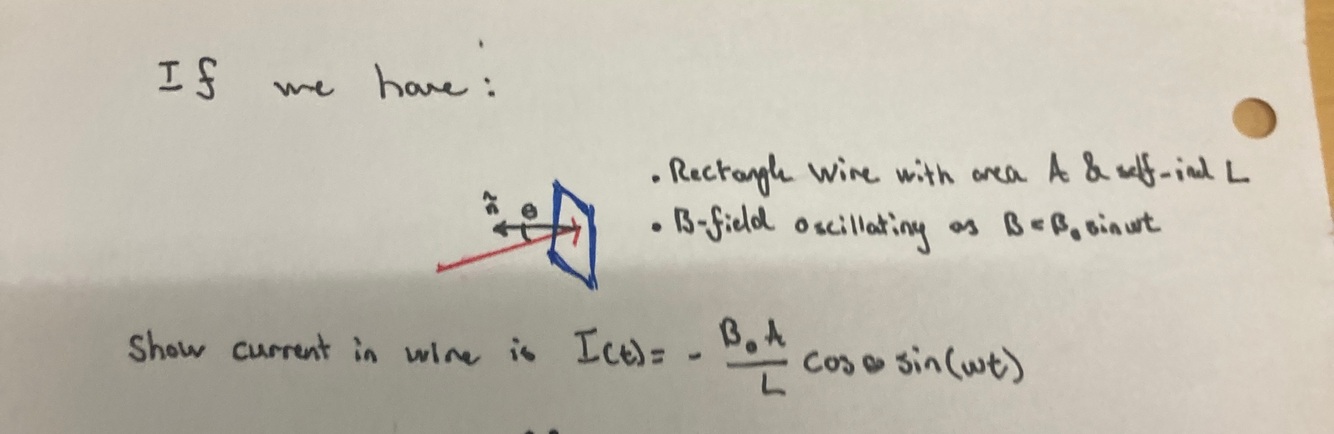 If we have:
• Rectangle wire with area A & self-ind L
ñ θ
• B-field oscillating as B = B₀ sin wt
Show current in wire is I(t) = - B₀A/L cos θ sin(wt)